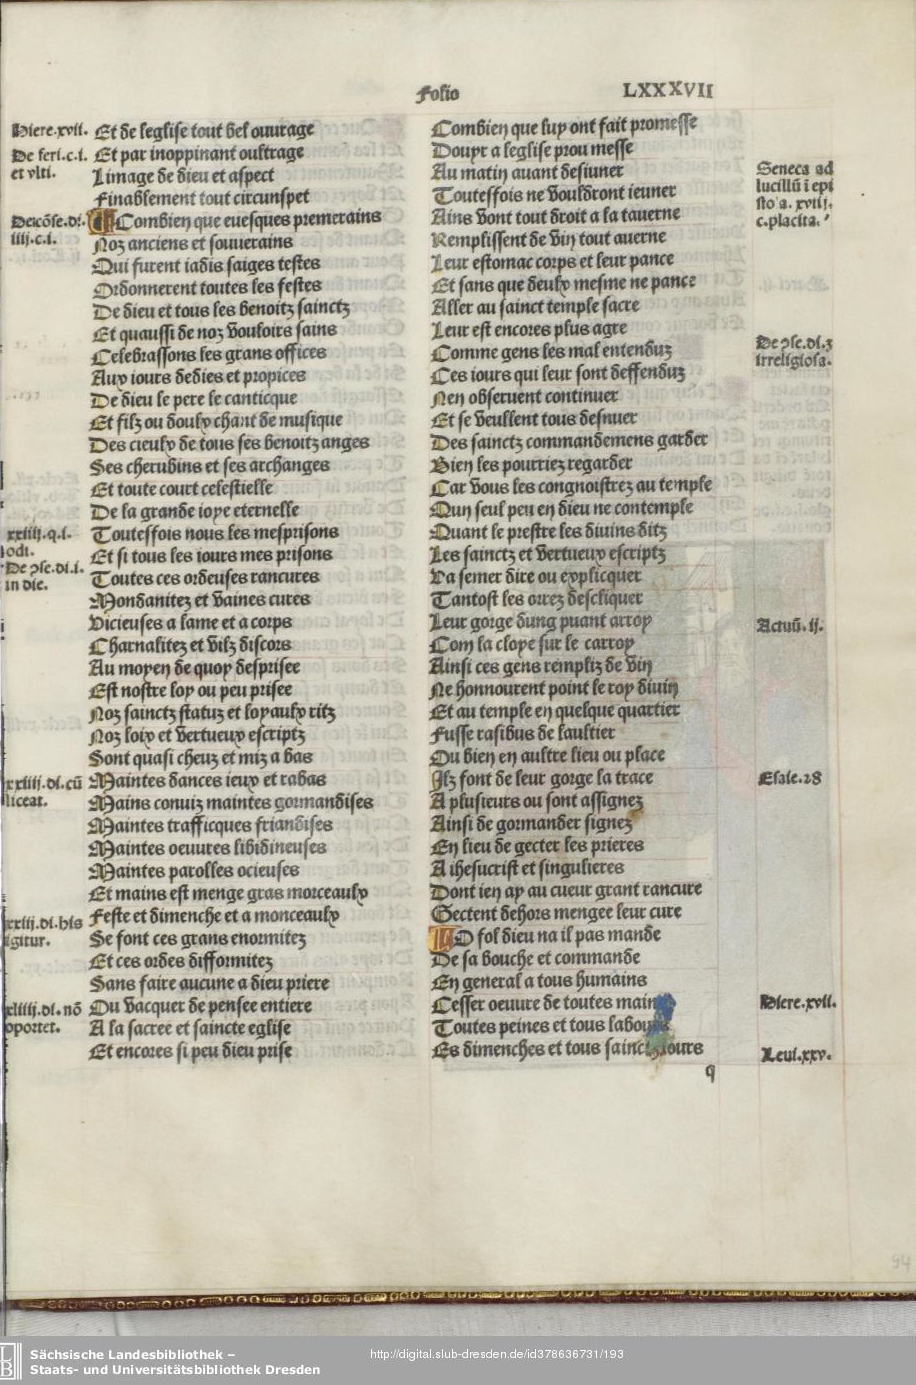 Folio LXXXVII
Hiere.xvii.
De feri.c.i.
et vlti.
Decõse.di.
iiij.c.i.
xxiiij.q.i.
odi.
De ɔse.di.i.
in die.
xxiiij.di.cũ
liceat.
xxiij.di.his
igitur.
xliiij.di.nõ
oportet.
Et de leglise tout bel ouurage
Et par inoppinant oultrage
Limage de dieu et aspect
Finablement tout circunspet
Combien que euesques premerains
Noz anciens et souuerains
Qui furent iadis saiges testes
Ordonnerent toutes les festes
De dieu et tous les benoitz sainctz
Et quaussi de noz vouloirs sains
Celebrassons les grans offices
Aux iours dedies et propices
De dieu le pere le canticque
Et filz ou doulx chant de musique
Des cieulx de tous ses benoitz anges
Ses cherubins et ses archanges
Et toute court celestielle
De la grande ioye eternelle
Toutesfois nous les mesprisons
Et si tous les iours mes prisons
Toutes ces ordeuses rancures
Mondanitez et vaines cures
Vicieuses a lame et a corps
Charnalitez et vilz discors
Au moyen de quoy desprisee
Est nostre loy ou peu prisee
Noz sainctz statuz et loyaulx ritz
Noz loix et vertueux escriptz
Sont quasi cheuz et miz a bas
Maintes dances ieux et rabas
Mains conuiz maintes gormandises
Maintes trafficques friandises
Maintes oeuures libidineuses
Maintes parolles ocieuses
Et mains est menge gras morceaulx
Feste et dimenche et a monceaulx
Se font ces grans enormitez
Et ces ordes difformitez
Sans faire aucune a dieu priere
Ou vacquer de pensee entiere
A la sacree et saincte eglise
Et encores si peu dieu prise
Combien que luy ont fait promesse
Douyr a leglise prou messe
Au matin auant desiuner
Toutesfois ne vouldront ieuner
Ains vont tout droit a la tauerne
Remplissent de vin tout auerne
Leur estomac corps et leur pance
Et sans que deulx mesme ne pance
Aller au sainct temple sacre
Leur est encores plus agre
Comme gens les mal entenduz
Ces iours qui leur sont deffenduz
Nen obseruent continuer
Et se veullent tous desnuer
Des sainctz commandemens garder
Bien les pourriez regarder
Car vous les congnoistrez au temple
Qun seul peu en dieu ne contemple
Quant le prestre les diuins ditz
Les sainctz et vertueux escriptz
Va semer dire ou explicquer
Tantost les orrez descliquer
Leur gorge dung puant arroy
Com la cloye sur le carroy
Ainsi ces gens rempliz de vin
Ne honnourent point le roy diuin
Et au temple en quelque quartier
Fusse rasibus de laultier
Ou bien en aultre lieu ou place
Ilz font de leur gorge la trace
A plusieurs ou sont assignez
Ainsi de gormander signez
En lieu de gecter les prieres
A ihesucrist et singulieres
Dont ien ay au cueur grant rancure
Gectent dehors mengee leur cure
O fol dieu na il pas mande
De sa bouche et commande
En general a tous humains
Cesser oeuure de toutes mains
Toutes peines et tous labours
Es dimenches et tous sainctz iours
q
Seneca ad
lucillũ ĩ epi
sto a. xvij.
c.placita.
De ɔse.di.3
irreligiosa.
Actuũ.ij.
Esaie.28
Hiere.xvii.
Leui.xxv.
94
Sächsische Landesbibliothek –
Staats- und Universitätsbibliothek Dresden
http://digital.slub-dresden.de/id378636731/193